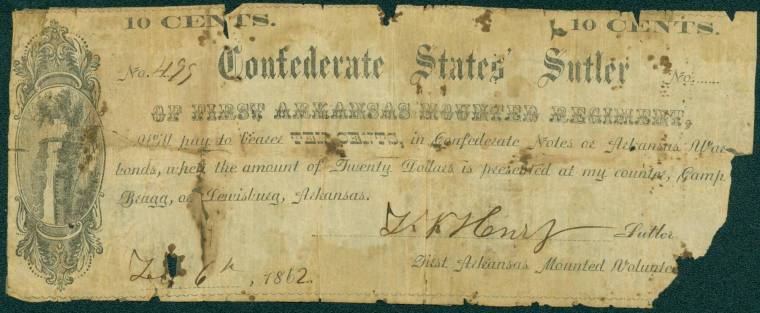 10 CENTS. 10 CENTS.
No. 495 Confederate States' Sutler No.
OF FIRST ARKANSAS MOUNTED REGIMENT,
Will pay to bearer TEN CENTS, in Confederate Notes or Arkansas War
bonds, when the amount of Twenty Dollars is presented at my counter, Camp
Bragg, or Lewisburg, Arkansas.
Henry Sutler
6th, 1862.
First Arkansas Mounted Voluntee